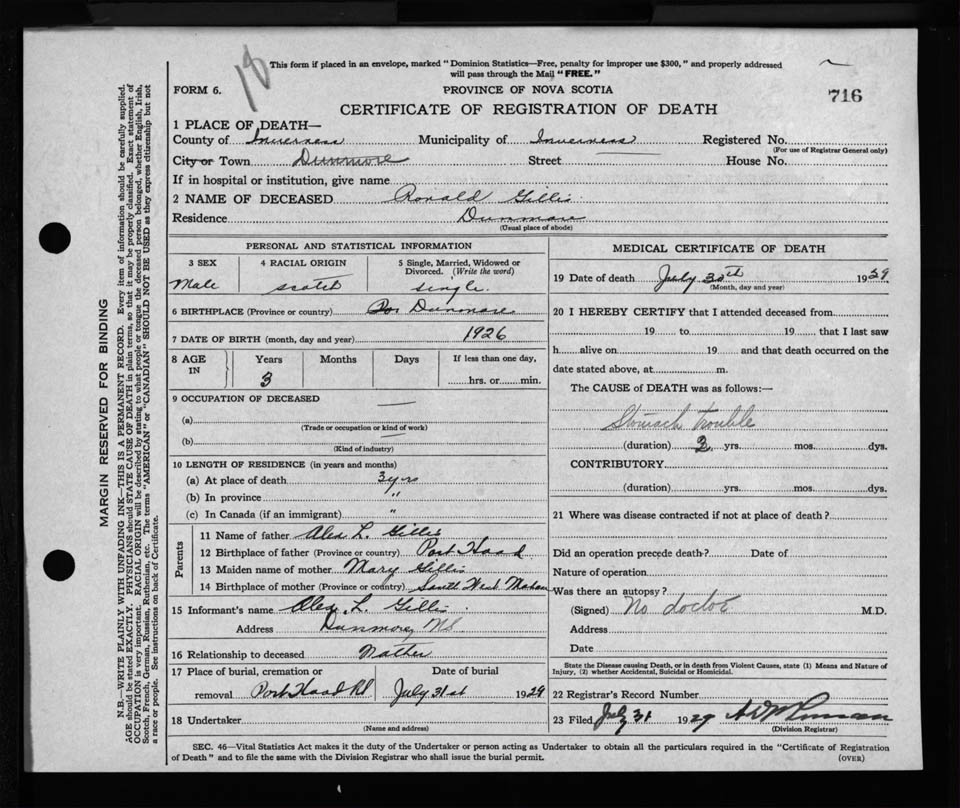 18
This form if placed in an envelope, marked "Dominion Statistics—Free, penalty for improper use $300," and properly addressed
will pass through the Mail "FREE."
FORM 6.
PROVINCE OF NOVA SCOTIA
716
CERTIFICATE OF REGISTRATION OF DEATH
1 PLACE OF DEATH—
County of Inverness Municipality of Inverness Registered No.
(For use of Registrar General only)
City or Town Dunmore Street House No.
If in hospital or institution, give name
2 NAME OF DECEASED Ronald Gillis
Residence Dunmore
(Usual place of abode)
PERSONAL AND STATISTICAL INFORMATION
3 SEX
Male
4 RACIAL ORIGIN
scotch
5 Single, Married, Widowed or
Divorced. (Write the word)
single
6 BIRTHPLACE (Province or country) Dunmore
7 DATE OF BIRTH (month, day and year) 1926
8 AGE IN
Years
3
Months
Days
If less than one day,
hrs. or min.
9 OCCUPATION OF DECEASED
(a)
(Trade or occupation or kind of work)
(b)
(Kind of industry)
10 LENGTH OF RESIDENCE (in years and months)
(a) At place of death 3 yrs
(b) In province "
(c) In Canada (if an immigrant) "
Parents
11 Name of father Alex L. Gillis
12 Birthplace of father (Province or country) Port Hood
13 Maiden name of mother Mary Gillis
14 Birthplace of mother (Province or country) South West Mabou
15 Informant's name Alex L. Gillis
Address Dunmore, NS
16 Relationship to deceased
17 Place of burial, cremation or Date of burial
removal Port Hood July 31st 1929
18 Undertaker
(Name and address)
MEDICAL CERTIFICATE OF DEATH
19 Date of death July 30th 1929
(Month, day and year)
20 I HEREBY CERTIFY that I attended deceased from
19 to 19 that I last saw
h alive on 19 and that death occurred on the
date stated above, at m.
The CAUSE of DEATH was as follows:—
Stomach trouble
(duration) 2 yrs. mos. dys.
CONTRIBUTORY
(duration) yrs. mos. dys.
21 Where was disease contracted if not at place of death?
Did an operation precede death? Date of
Nature of operation
Was there an autopsy?
(Signed) No doctor M.D.
Address
Date
State the Disease causing Death, or in death from Violent Causes, state (1) Means and Nature of
Injury, (2) whether Accidental, Suicidal or Homicidal.
22 Registrar's Record Number
23 Filed July 31 1929
(Division Registrar)
SEC. 46—Vital Statistics Act makes it the duty of the Undertaker or person acting as Undertaker to obtain all the particulars required in the "Certificate of Registration
of Death" and to file the same with the Division Registrar who shall issue the burial permit.
(OVER)
MARGIN RESERVED FOR BINDING
N.B.—WRITE PLAINLY WITH UNFADING INK—THIS IS A PERMANENT RECORD. Every item of information should be carefully supplied.
AGE should be stated EXACTLY. PHYSICIANS should STATE CAUSE OF DEATH in plain terms, so that it may be properly classified. Exact statement of
OCCUPATION is very important. RACIAL ORIGIN will be described by stating to what people or tongue the deceased person belonged, whether English, Irish,
Scotch, French, German, Russian, Ruthenian, etc. The terms "AMERICAN" or "CANADIAN" SHOULD NOT BE USED as they express citizenship but not
a race or people. See instructions on back of Certificate.